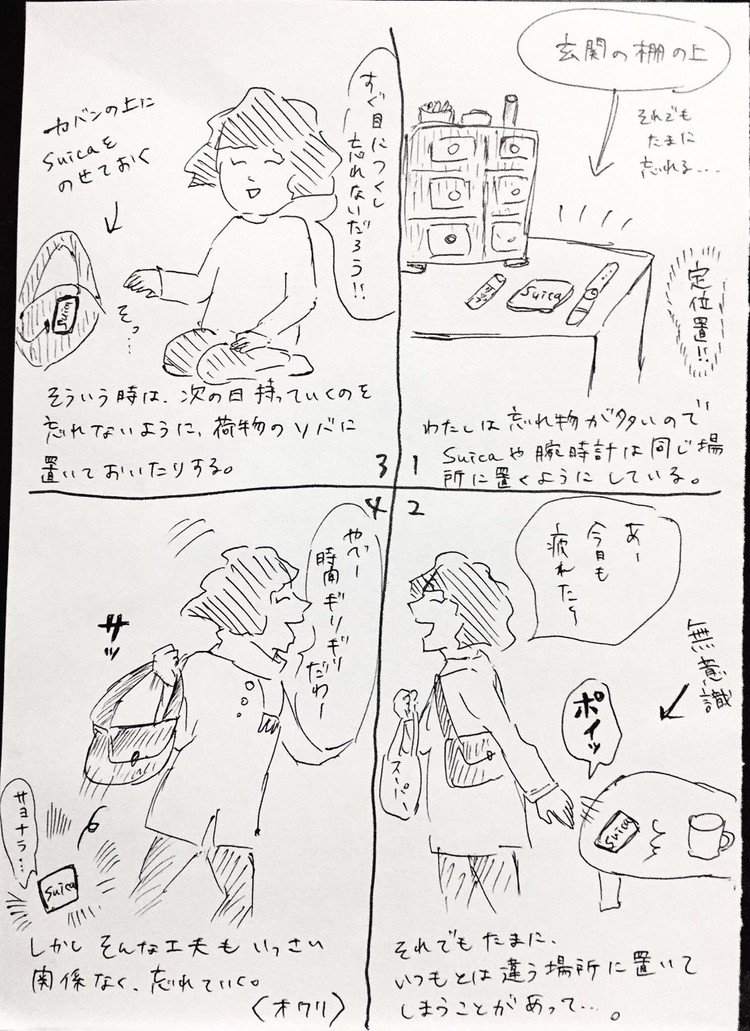 玄関の棚の上
それでも
たまに
忘れる...
Suica
定位置!!
わたしは忘れ物が多いので
Suicaや腕時計は同じ場
所に置くようにしている。
1
2
あー
今日も
疲れた〜
無意識
ポイッ
スーパー
Suica
それでもたまに、
いつもとは違う場所に置いて
しまうことがあって…。
すぐ目につくし
忘れないだろう!!
カバンの上に
Suicaを
のせておく
Suica
そっ…
そういう時は、次の日持っていくのを
忘れないように、荷物のソバに
置いておいたりする。
3
4
やべー
時間ギリギリ
だわー
サッ
サヨナラ…
Suica
しかしそんな工夫もいっさい
関係なく、忘れていく。
〈オワリ〉